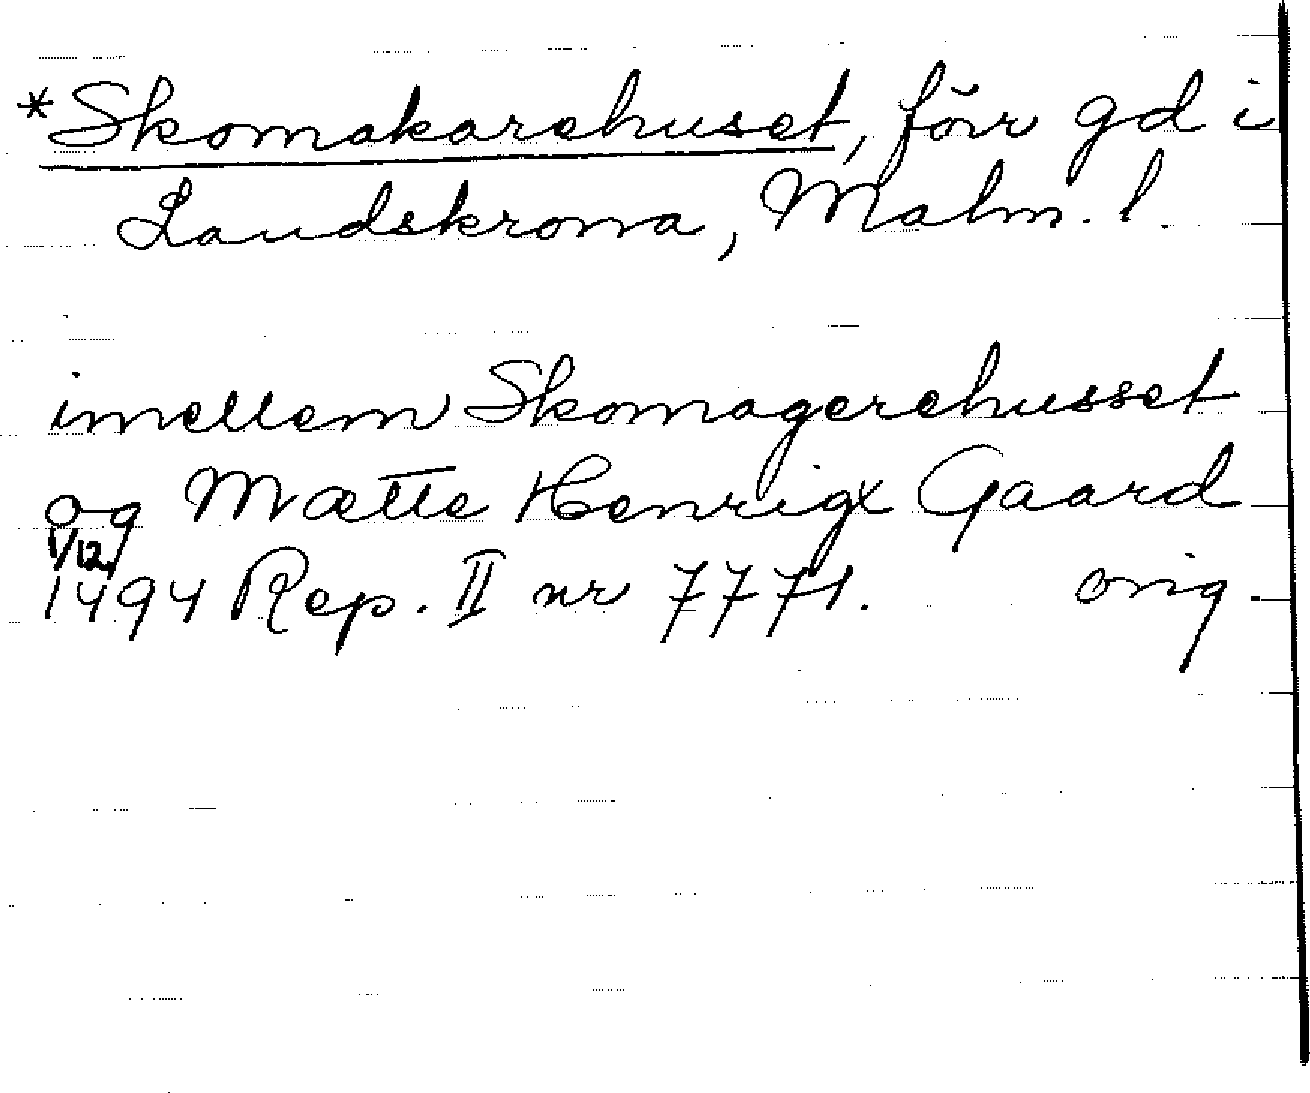 *Skomakarehuset, förr gd i
Landskrona, Malm. l.
imellem Skomagerehusset
og Mætte Henrigx Gaard
1/12
1494 Rep. II nr 7771. orig.